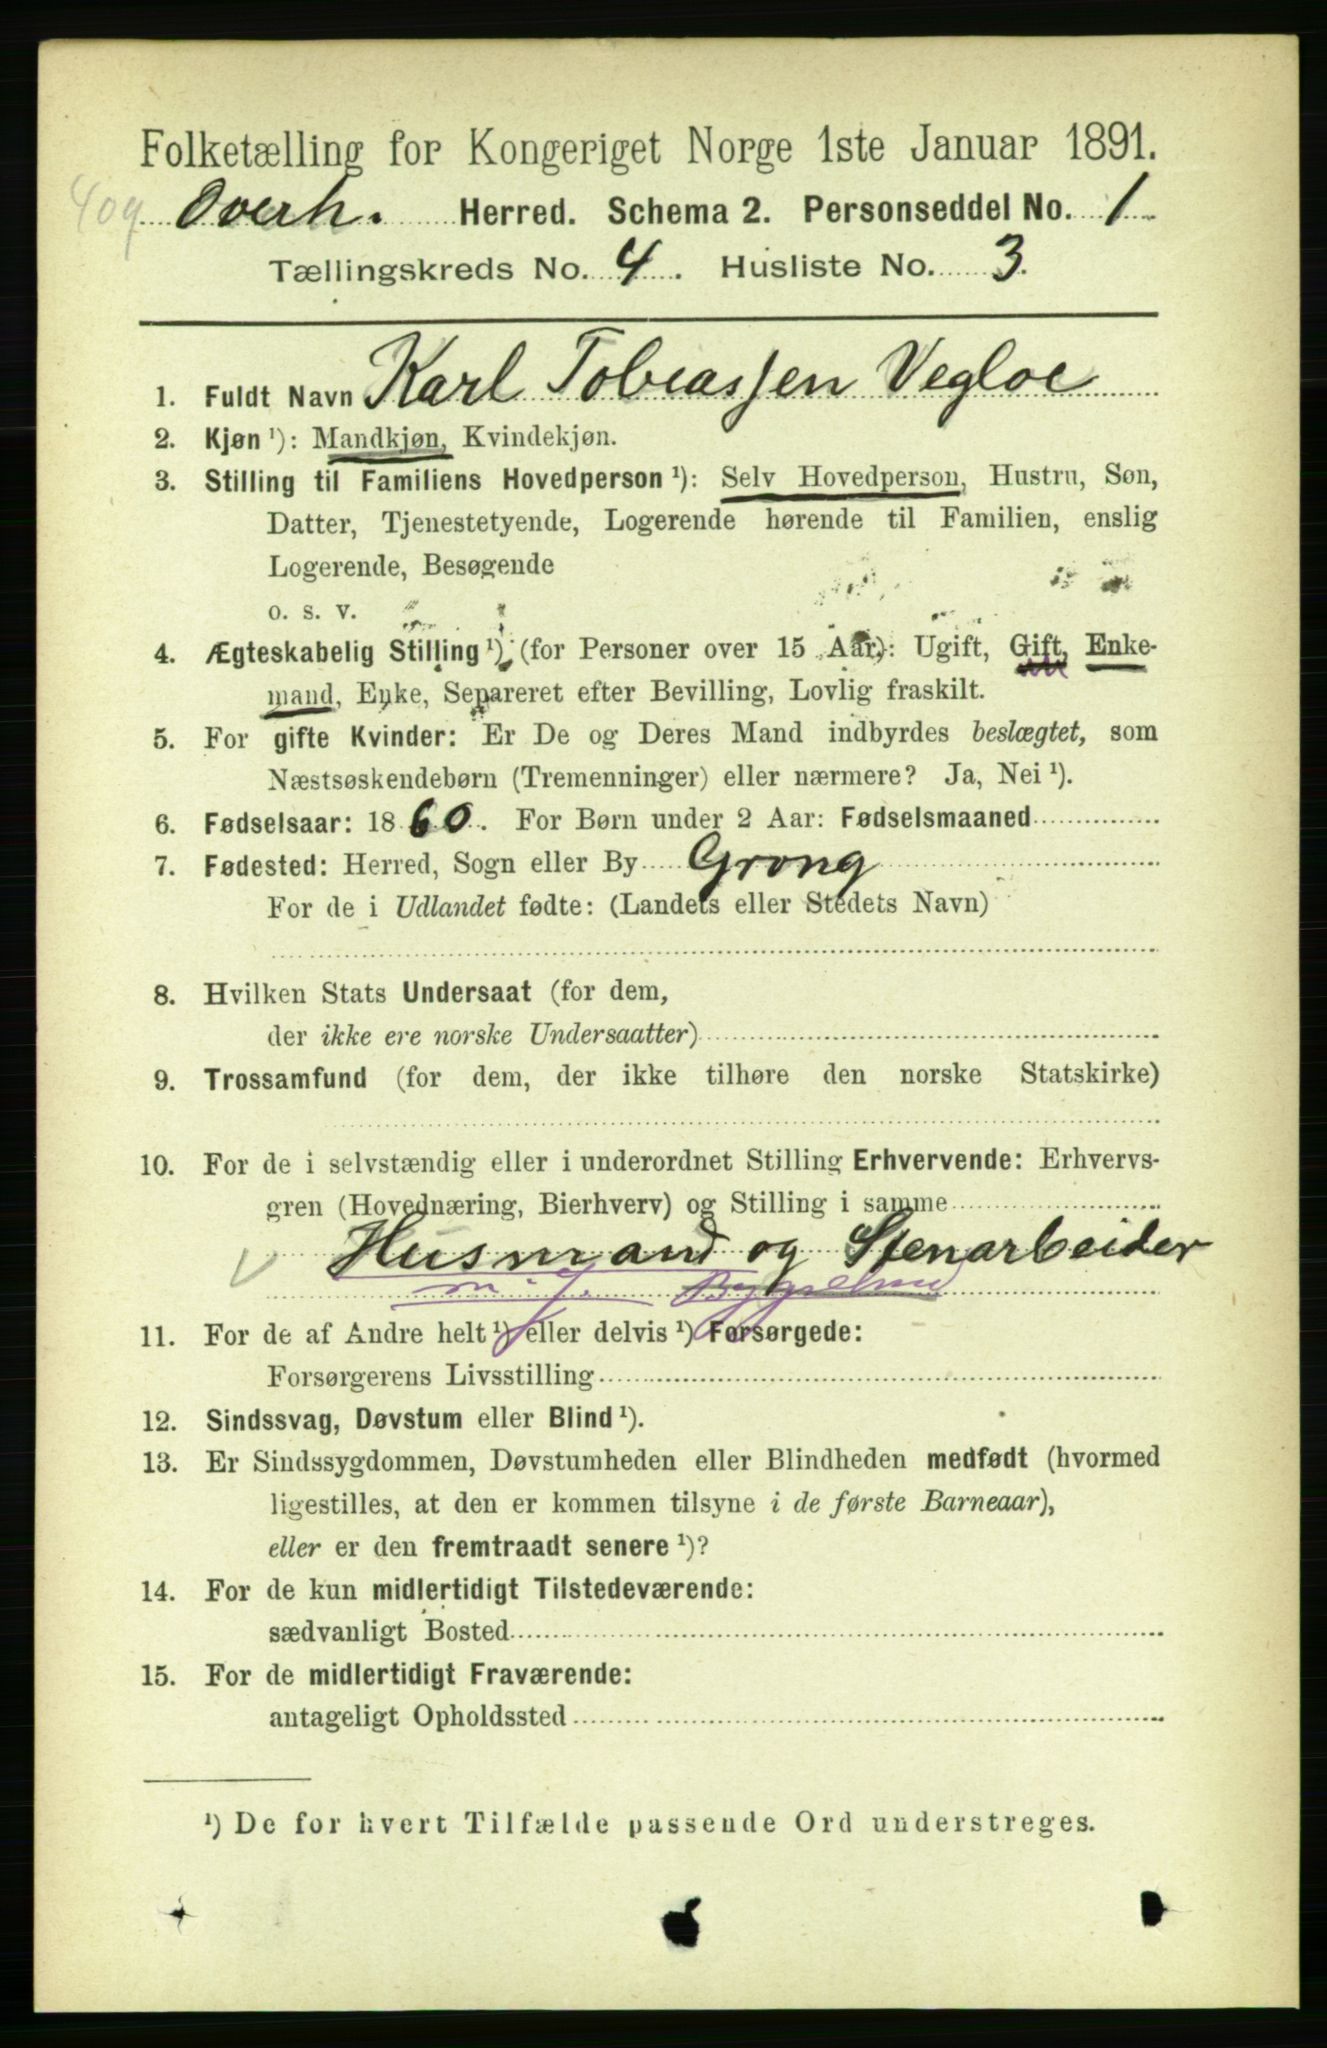 Folketælling for Kongeriget Norge 1ste Januar 1891.
409 Overh. Herred. Schema 2. Personseddel No. 1
Tællingskreds No. 4. Husliste No. 3.
1. Fuldt Navn Karl Tobiassen Vegloe
2. Kjøn ¹): Mandkjøn, Kvindekjøn.
3. Stilling til Familiens Hovedperson ¹): Selv Hovedperson, Hustru, Søn,
Datter, Tjenestetyende, Logerende hørende til Familien, enslig
Logerende, Besøgende
o. s. v.
4. Ægteskabelig Stilling ¹) (for Personer over 15 Aar): Ugift, Gift, Enke-
mand, Enke, Separeret efter Bevilling, Lovlig fraskilt.
5. For gifte Kvinder: Er De og Deres Mand indbyrdes beslægtet, som
Næstsøskendebørn (Tremenninger) eller nærmere? Ja, Nei ¹).
6. Fødselsaar: 1860. For Børn under 2 Aar: Fødselsmaaned
7. Fødested: Herred, Sogn eller By Grong
For de i Udlandet fødte: (Landets eller Stedets Navn)
8. Hvilken Stats Undersaat (for dem,
der ikke ere norske Undersaatter)
9. Trossamfund (for dem, der ikke tilhøre den norske Statskirke)
10. For de i selvstændig eller i underordnet Stilling Erhvervende: Erhvervs-
gren (Hovednæring, Bierhverv) og Stilling i samme
Husmand og Stenarbeider
m. j.
11. For de af Andre helt ¹) eller delvis ¹) Forsørgede:
Forsørgerens Livsstilling
12. Sindssvag, Døvstum eller Blind ¹).
13. Er Sindssygdommen, Døvstumheden eller Blindheden medfødt (hvormed
ligestilles, at den er kommen tilsyne i de første Barneaar),
eller er den fremtraadt senere ¹)?
14. For de kun midlertidigt Tilstedeværende:
sædvanligt Bosted
15. For de midlertidigt Fraværende:
antageligt Opholdssted
¹) De for hvert Tilfælde passende Ord understreges.